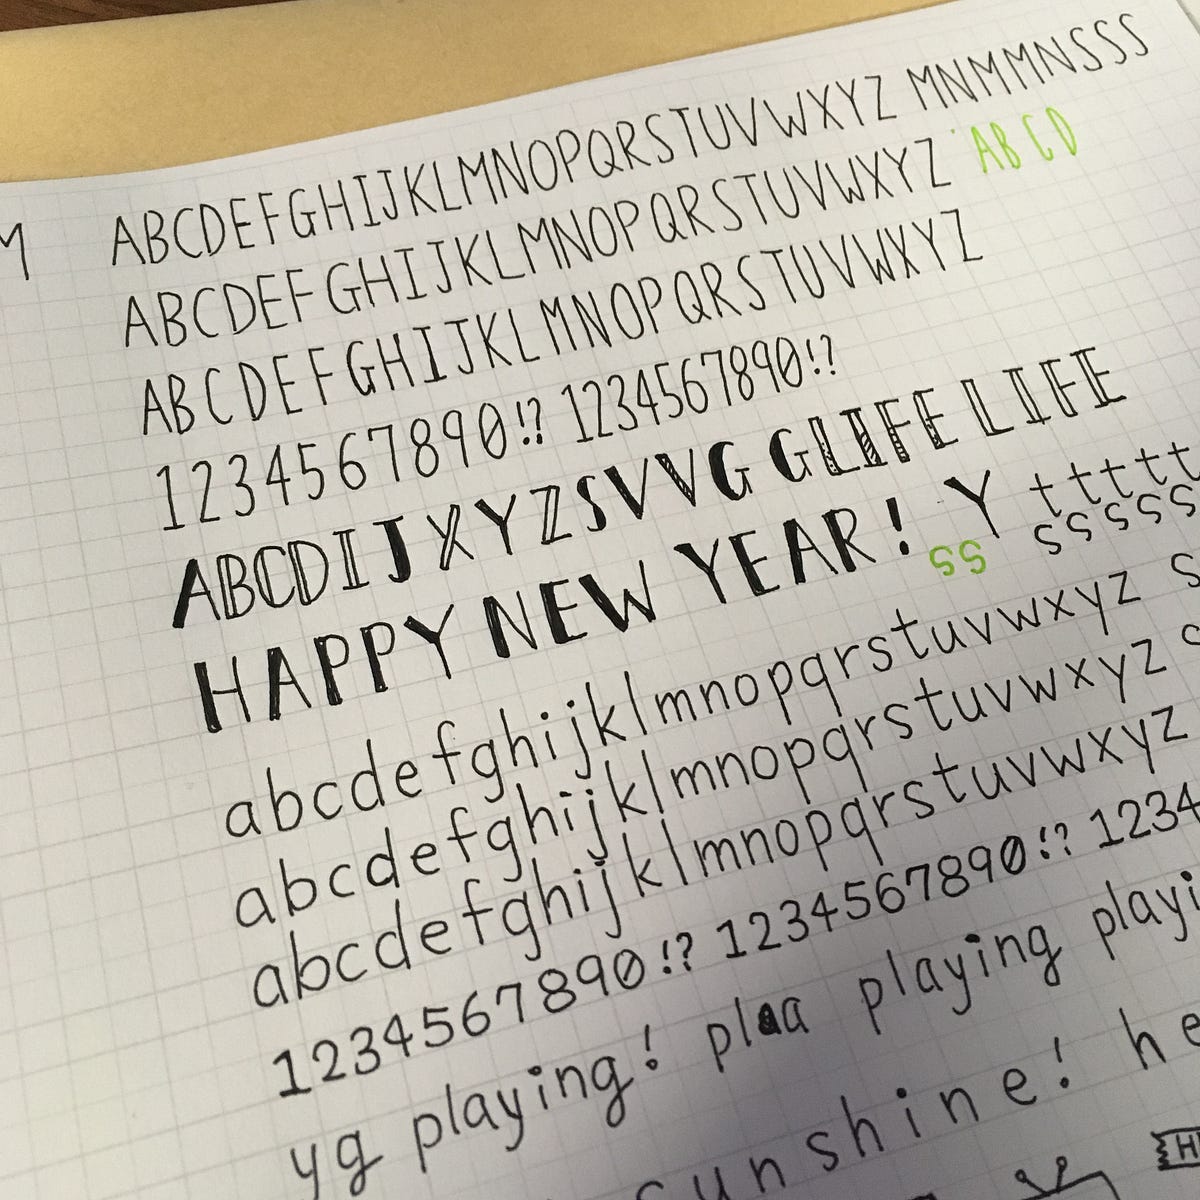 M ABCDEFGHIJKLMNOPQRSTUVWXYZ MNMMNSSS
ABCDEFGHIJKLMNOPQRSTUVWXYZ ABCD
ABCDEFGHIJKLMNOPQRSTUVWXYZ
1234567890!? 1234567890!?
ABCDIJXYZSVVG GLIFE LIFE
HAPPY NEW YEAR! Y ttttt
ss sssss
abcdefghijklmnopqrstuvwxyz s
abcdefghijklmnopqrstuvwxyz
abcdefghijklmnopqrstuvwxyz
1234567890!? 1234567890!? 1234
yg playing! plaa playing playi
sunshine! he
H